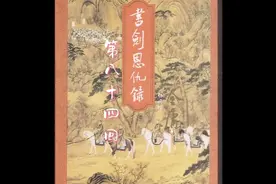 書劍恩仇錄
第八十四回